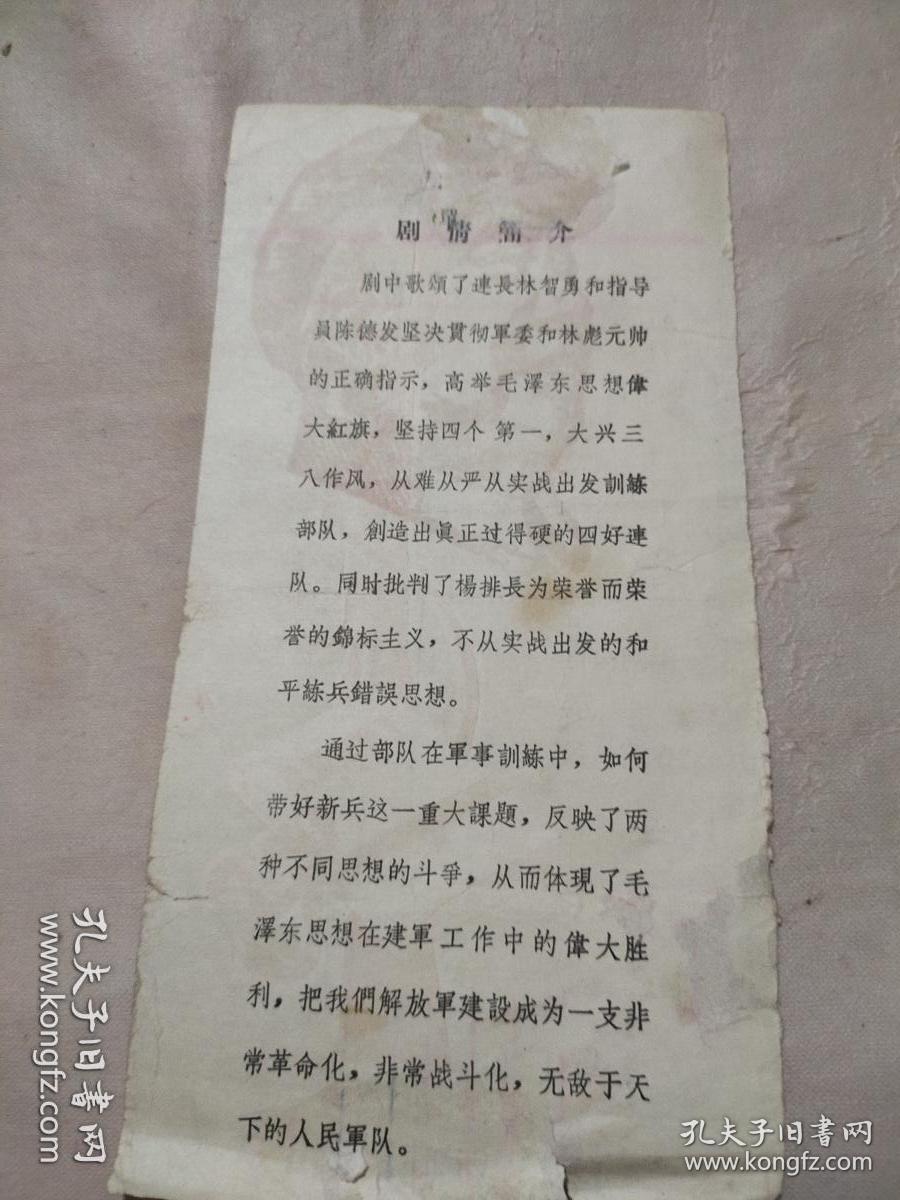 剧情简介
剧中歌頌了連長林智勇和指导
員陈德发坚决貫彻軍委和林彪元帅
的正确指示，高举毛澤东思想偉
大紅旗，坚持四个第一，大兴三
八作风，从难从严从实战出发訓練
部队，創造出眞正过得硬的四好連
队。同时批判了楊排長为荣誉而荣
誉的錦标主义，不从实战出发的和
平練兵錯誤思想。
通过部队在軍事訓練中，如何
带好新兵这一重大課題，反映了两
种不同思想的斗爭，从而体現了毛
澤东思想在建軍工作中的偉大胜
利，把我們解放軍建設成为一支非
常革命化，非常战斗化，无敌于天
下的人民軍队。
孔夫子旧书网
www.kongfz.com
孔夫子旧书网
www.kongfz.com